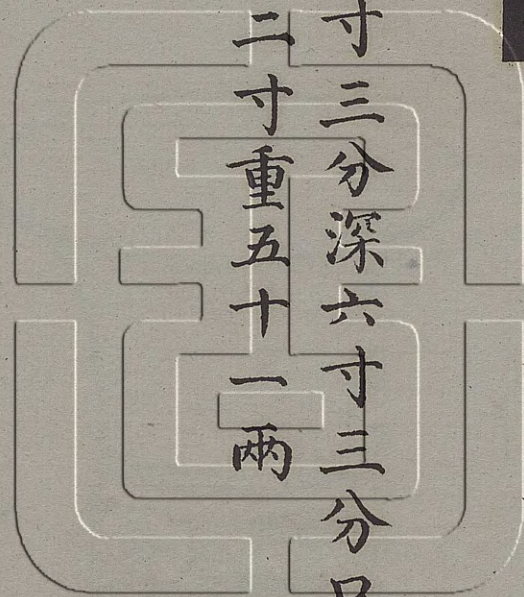 寸三分深六寸三分口
二寸重五十一兩